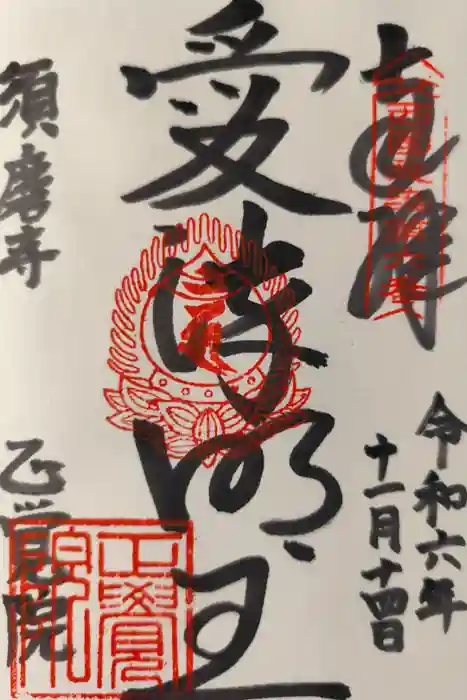 令和六年
十一月十四日
愛染明王
須磨寺
正覚院
正覺院